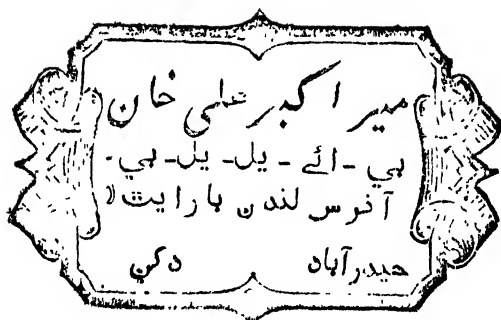 میر اکبر علی خان
بي - ائے - یل - یل - بي -
آنرس لندن بارایٹ لا
حیدرآباد دکن